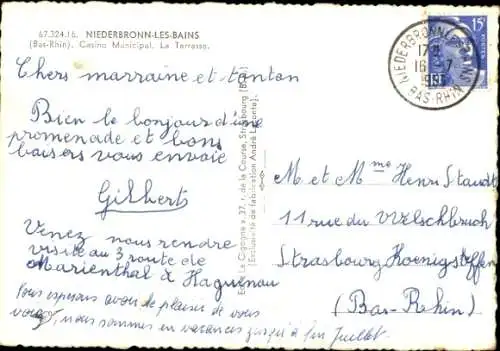 67.324.16. NIEDERBRONN-LES-BAINS
(Bas-Rhin). Casino Municipal. La Terrasse.
Chers marraine et tonton
Bien le bonjour d'une
promenade et bons
baisers vous envoie
Gilbert
Venez nous rendre
visite au 3 route de
Marienthal à Haguenau
Nous espérons avoir de plaisir de vous
voir, nous sommes en vacances jusqu'à fin Juillet.
Edit. La Cigogne, 37, r. de la Course, Strasbourg
(Exclusivité de fabrication André Leconte).
NIEDERBRONN-LES-BAINS
16 -7
BAS-RHIN
15F
POSTES
M et Mme Henri
11 rue du
Strasbourg Koenigshoffen
(Bas-Rhin)